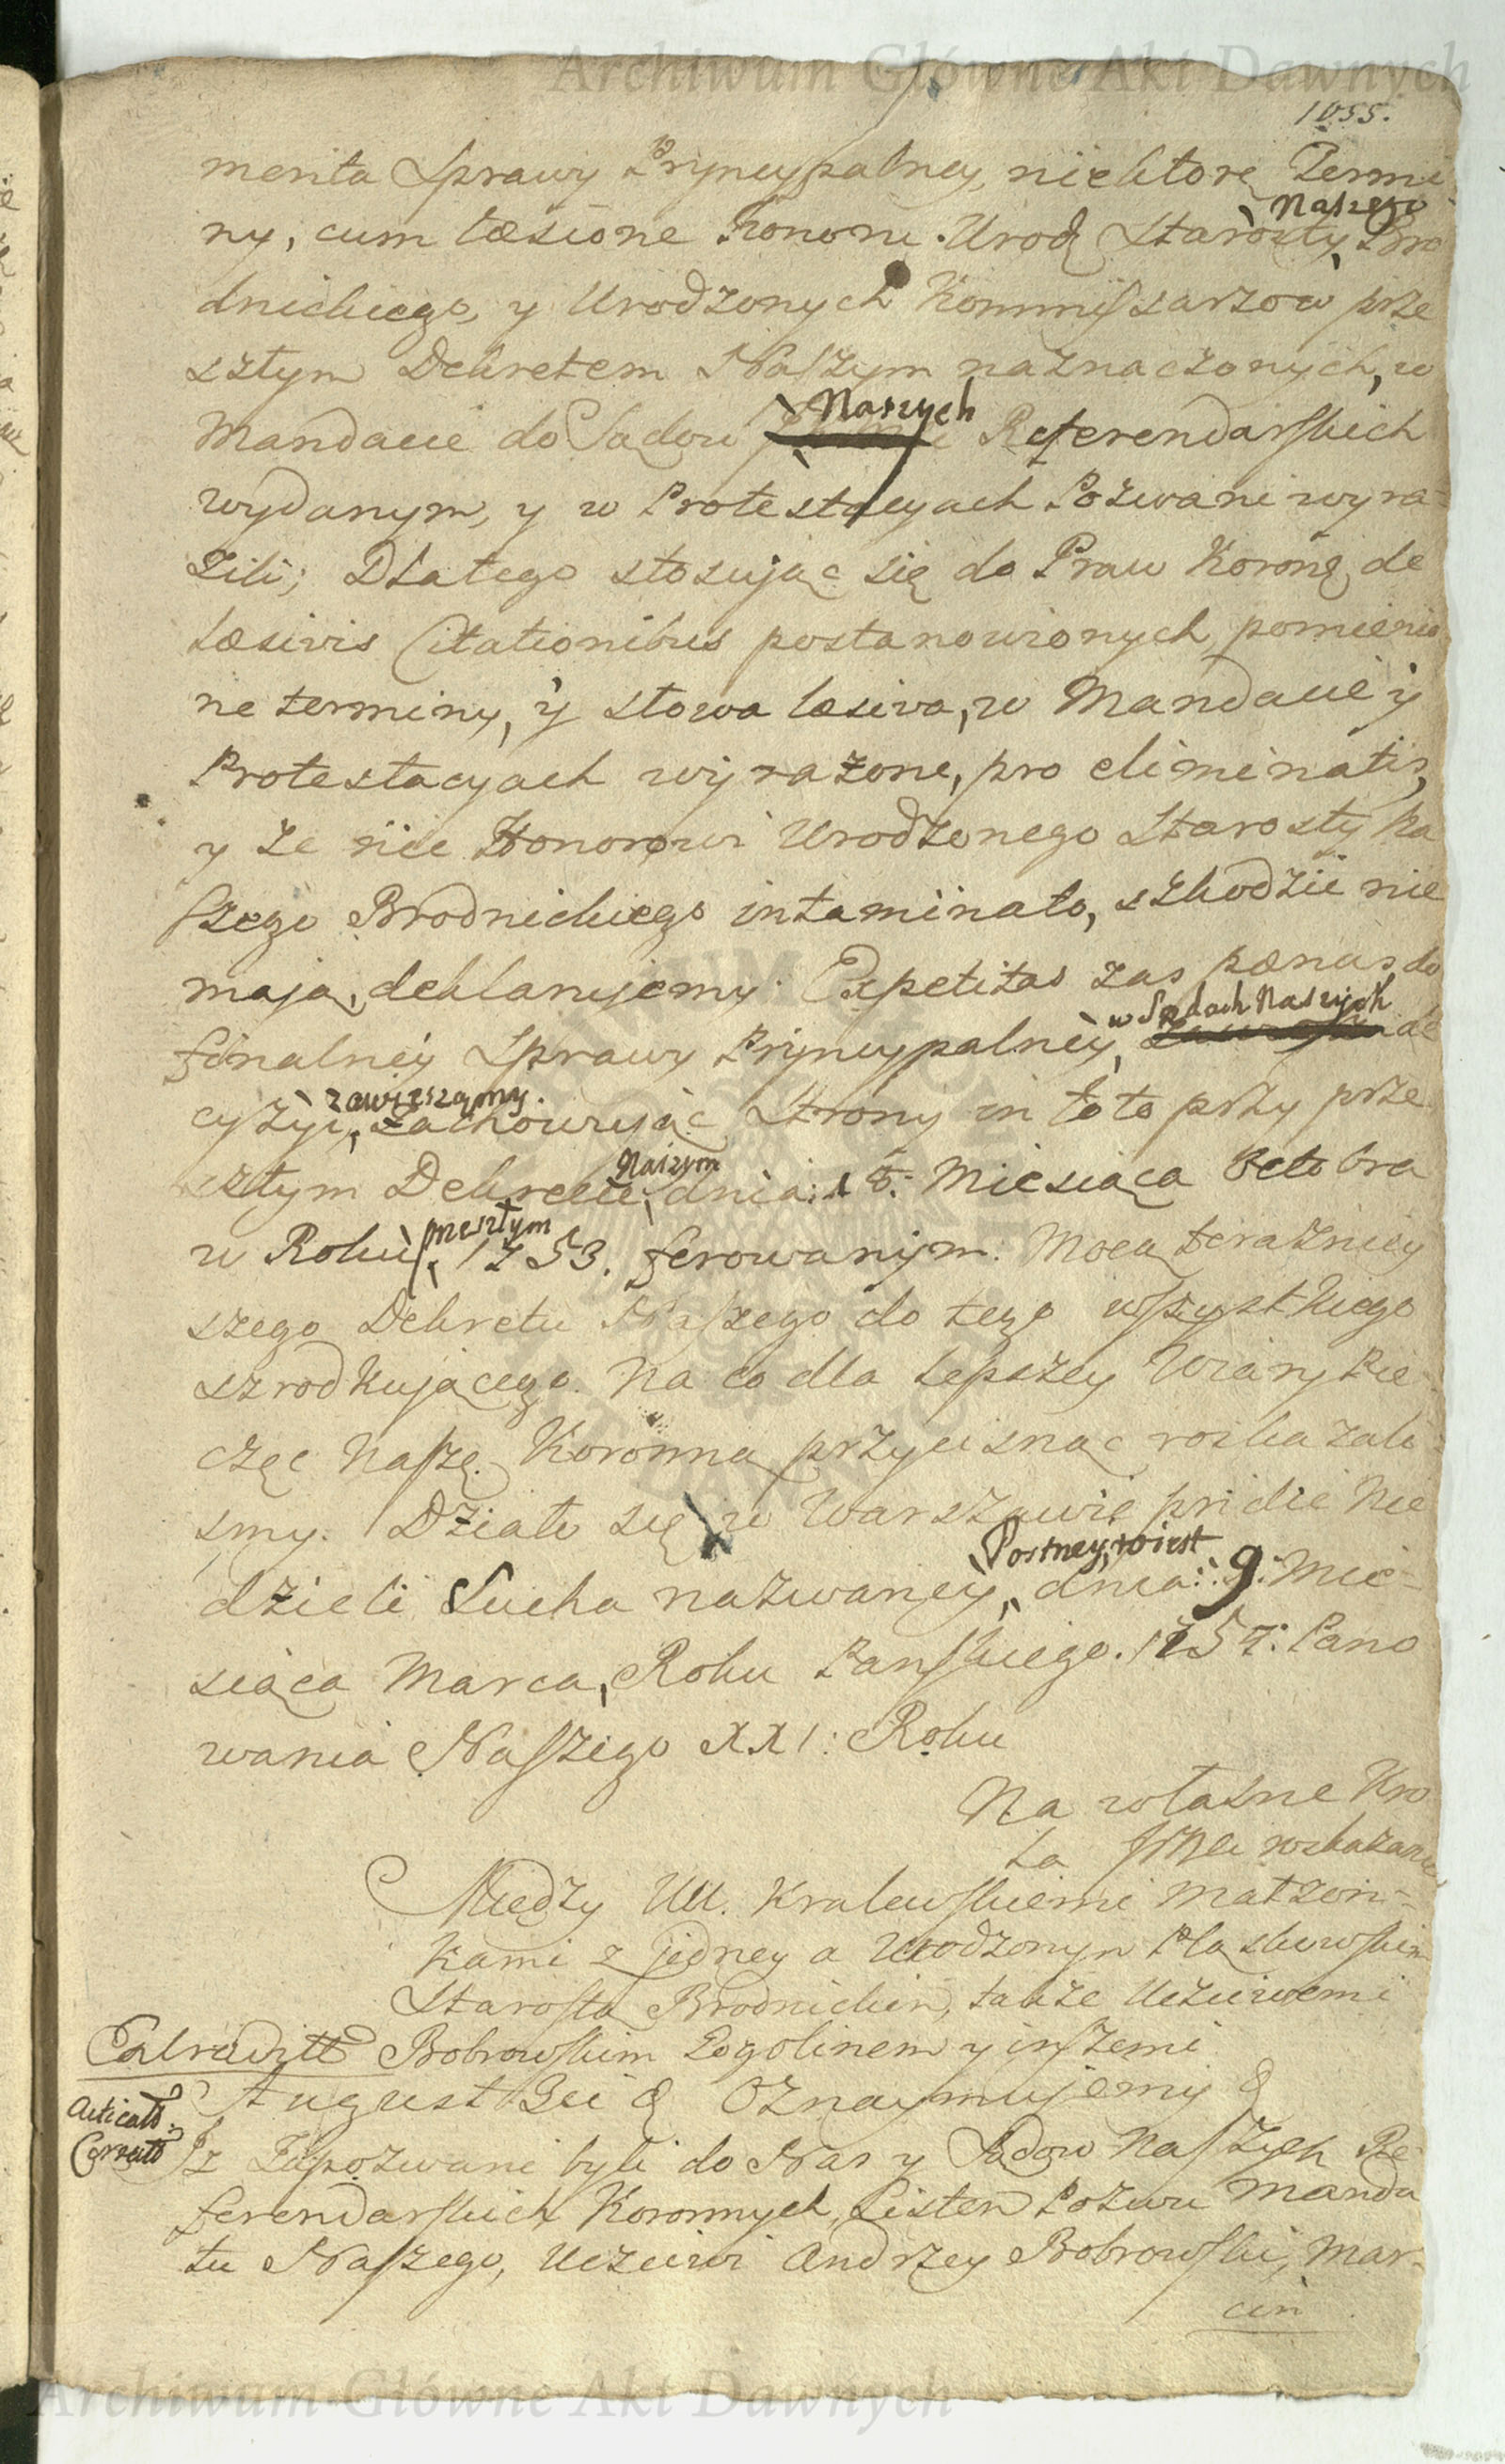 Archiwum Główne Akt Dawnych
1055.
merita Sprawy Pryncypalney, niektore Termi-
Naszego
ny, cum læsione honoru Urodz Starosty Bro
dnickiego, y Urodzonych Kommissarzow prze
szłym Dekretem Naszym naznaczonych, w
Naszych
Mandacie do Sądow Referendarskich
wydanym, y w Protestacyach Pozwani wyra-
zili; Dlatego stosując się do Praw Koronę de
læsivis Citationibus postanowionych, pomienio
ne terminy, y słowa læsiva, w Mandacie y
Protestacyach wyrażone, pro eliminatis,
y że nic Honorowi Urodzonego Starosty Na
szego Brodnickiego intaminato, szkodzić nie
mają, deklarujemy. Expetitas zas pænas, do
w Sądach Naszych
finalney Sprawy Pryncypalney, de
zawieszamy.
cyzyi, zachowując Strony in toto przy prze
Naszym
szłym Dekrecie, dnia: 18: Miesiąca Octobra
przeszłym
w Roku, 1753. ferowanym. Mocą terazniey
szego Dekretu Naszego do tego wszystkiego
szrodkującego. Na co dla lepszey Wiary Pie
częc Naszę Koronną przycisnąc roskazali
smy. Działo się w Warszawie pridie Nie
Postney, to iest
dzieli Sucha nazwaney, dnia: 9: Mie-
siąca Marca, Roku Panskiego. 1754: Pano
wania Naszego XXI: Roku
Na własne Kro
la JMci roskazanie
Miedzy UU. Kralewskiemi Małzon-
kami z jedney a Urodzonym Plaskowskim
Starostą Brodnickim, także Uczciwemi
Bobrowskim Pogolinem y inszemi
August 3ci & Oznaymujemy &
Jz Zapozwani byli do Nas y Sądow Naszych Re-
ferendarskich Koronnych, Listem Pozwu Manda
tu Naszego, Uczciwi Andrzey Bobrowski, Mar-
cin
Archiwum Główne Akt Dawnych